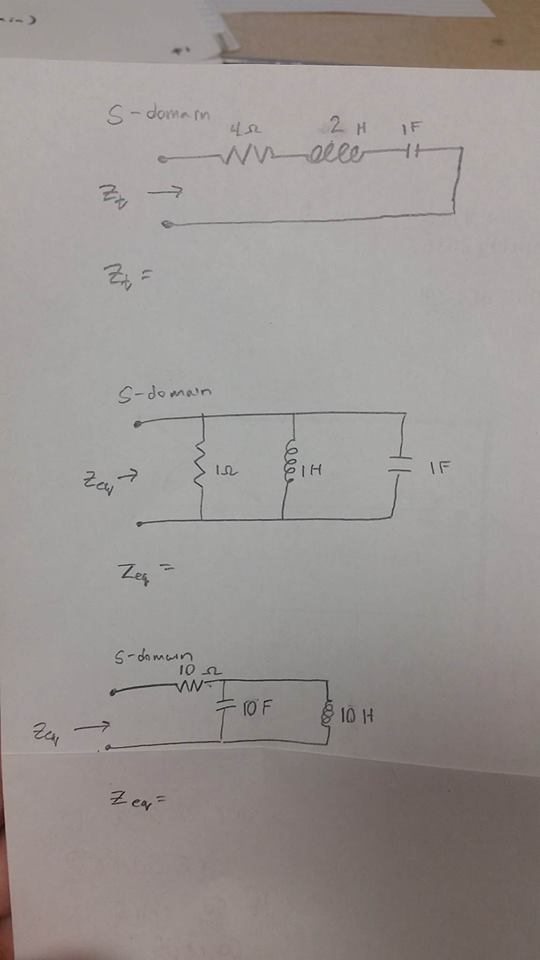 S-domain
4Ω 2 H 1F
Zt →
Zt =
S-domain
Zeq → 1Ω 1H 1F
Zeq =
S-domain
10 Ω
Zeq → 10F 10 H
Zeq =